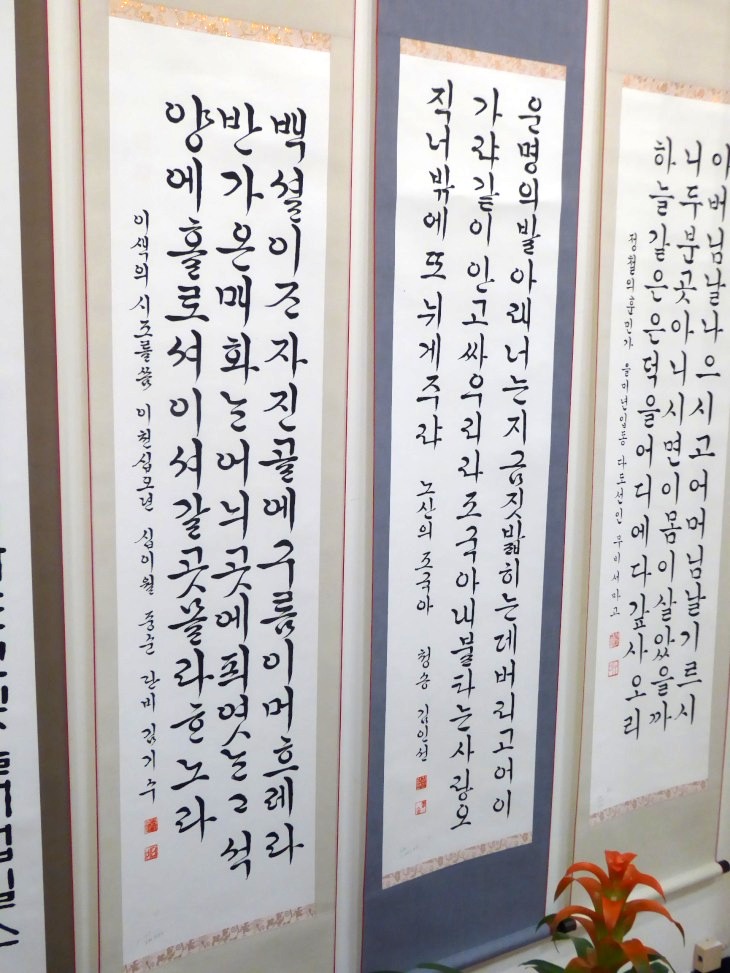 아버님날나으시고어머님날기르시
니두분곳아니시면이몸이살았을까
하늘같은은덕을어디에다갚사오리
정철의훈민가 을미년입동 다도선인
운명의발아래너는지금짓밟히는데버리고어이
가랴같이안고싸우리라조국아내불타는사랑오
직너밖에또뉘게주랴 노산의조국아 청송 김인선
백셜이ᄌᆞ자진골에구름이머흐레라
반가온매화ᄂᆞᆫ어늬곳에픠엿ᄂᆞᆫ고석
양에홀로셔이셔갈곳몰라ᄒᆞ노라
이색의시조를씀 이천십오년 십이월 중순 란비 김기수